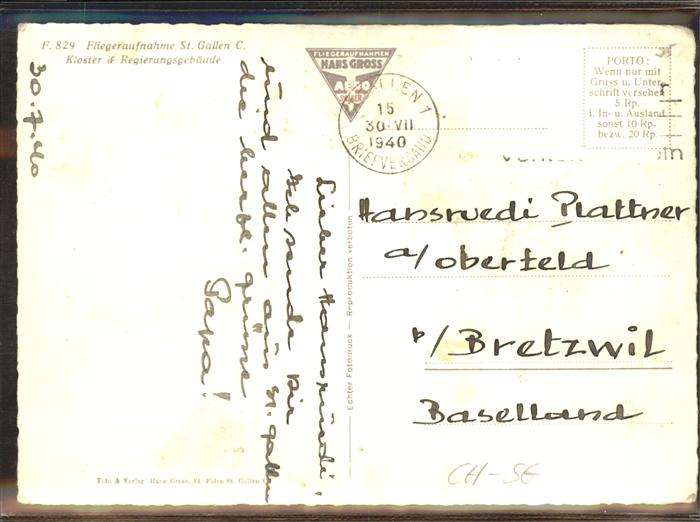 F. 829 Fliegeraufnahme St. Gallen C.
Kloster & Regierungsgebäude
30.7.40
Lieber Hansruedi,
Ich sende Dir
und allen aus St. Gallen
die herzl. Grüsse
Papa!
FLIEGERAUFNAHMEN
HANS GROSS
GALLEN 1
15
30.VII
1940
BRIEFVERSAND
PORTO:
Wenn nur mit
Gruss u. Unter-
schrift versehen
5 Rp.
i. In- u. Ausland
sonst 10 Rp.
bezw. 20 Rp.
Hansruedi Plattner
a/Oberfeld
b/Bretzwil
Baselland
Echter Fotodruck — Reproduktion verboten
Foto & Verlag Hans Gross, St. Fiden-St. Gallen
CH-SG